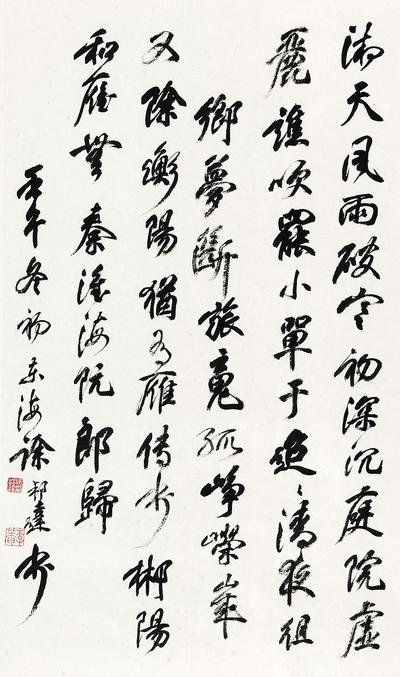 湘天風雨破寒初深沉庭院虛
麗譙吹罷小單于迢〻清夜徂
鄉夢斷旅魂孤崢嶸歲
又除衡陽猶有雁傳書郴陽
和雁無秦淮海阮郎歸
壬午冬初東海徐邦達書